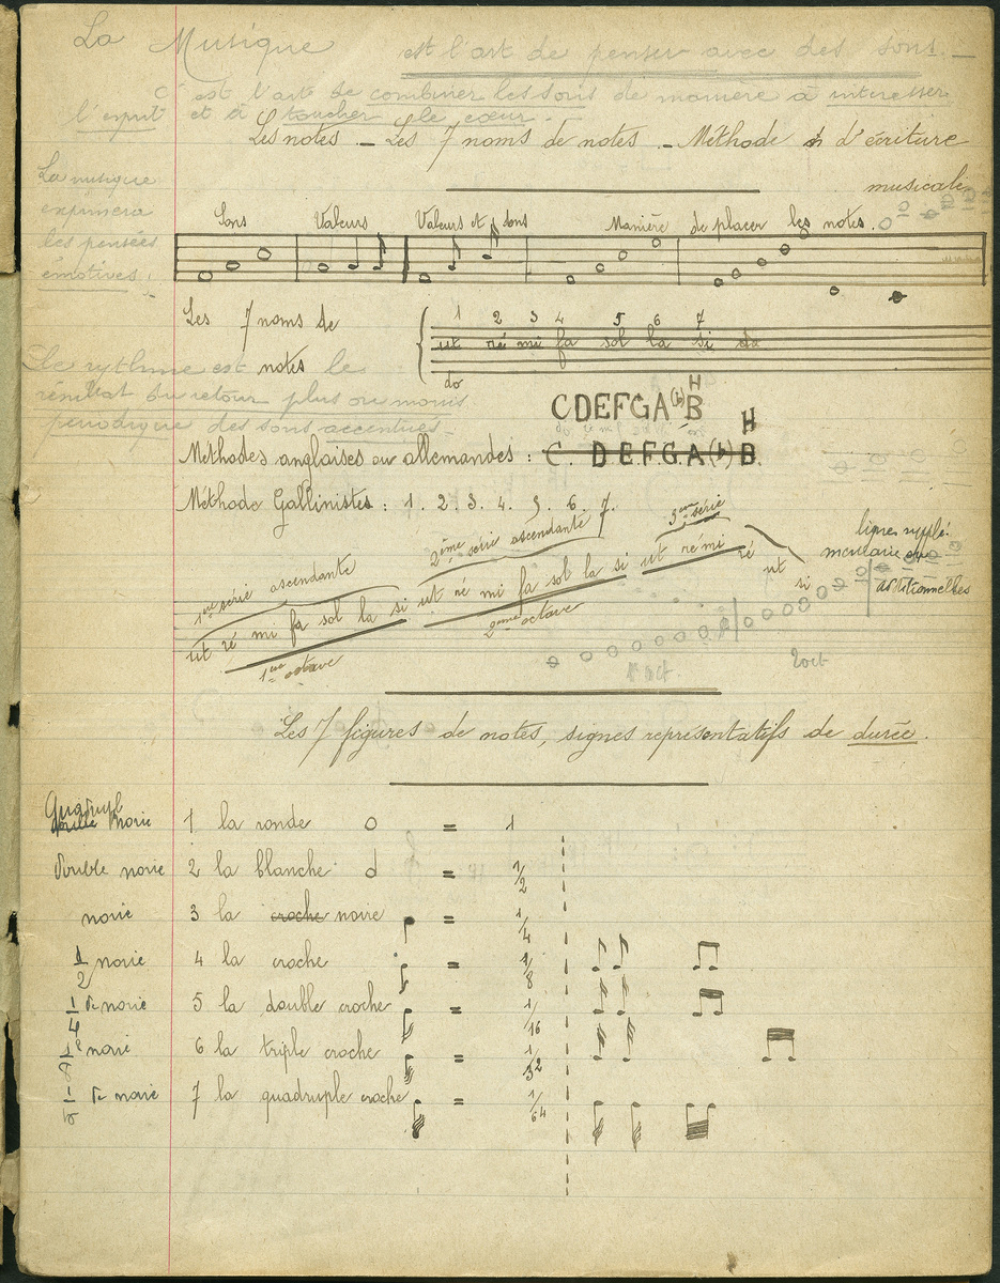 La Musique est l'art de penser avec des sons. _
c'est l'art de combiner les sons de manière à intéresser
l'esprit et à toucher le cœur. _
Les notes _ Les 7 noms de notes _ Méthode d'écriture
musicale
La musique
exprimera
les pensées
émotives.
Sons Valeurs Valeurs et sons Manière de placer les notes.
Les 7 noms de
notes
1 2 3 4 5 6 7
ut ré mi fa sol la si do
do
Le rythme est le
résultat du retour plus ou moins
périodique des sons accentués _
H
CDEFGA(b)B
H
Méthodes anglaises ou allemandes : C. D E F. G. A (b) B.
Méthode Gallinistes : 1. 2. 3. 4. 5. 6. 7.
1ère série ascendante 2ème série ascendante 3ème série
ut ré mi fa sol la si ut ré mi fa sol la si ut ré mi ré ut si
1ère octave 2ème octave
lignes supplé-
mentaires ou
additionnelles
1° oct. 2 oct
Les 7 figures de notes, signes représentatifs de durée.
Quadrupl noire 1 la ronde = 1
double noire 2 la blanche = 1/2
noire 3 la croche noire = 1/4
1/2 noire 4 la croche = 1/8
1/4 de noire 5 la double croche = 1/16
1/8 noire 6 la triple croche = 1/32
de noire 7 la quadruple croche = 1/64